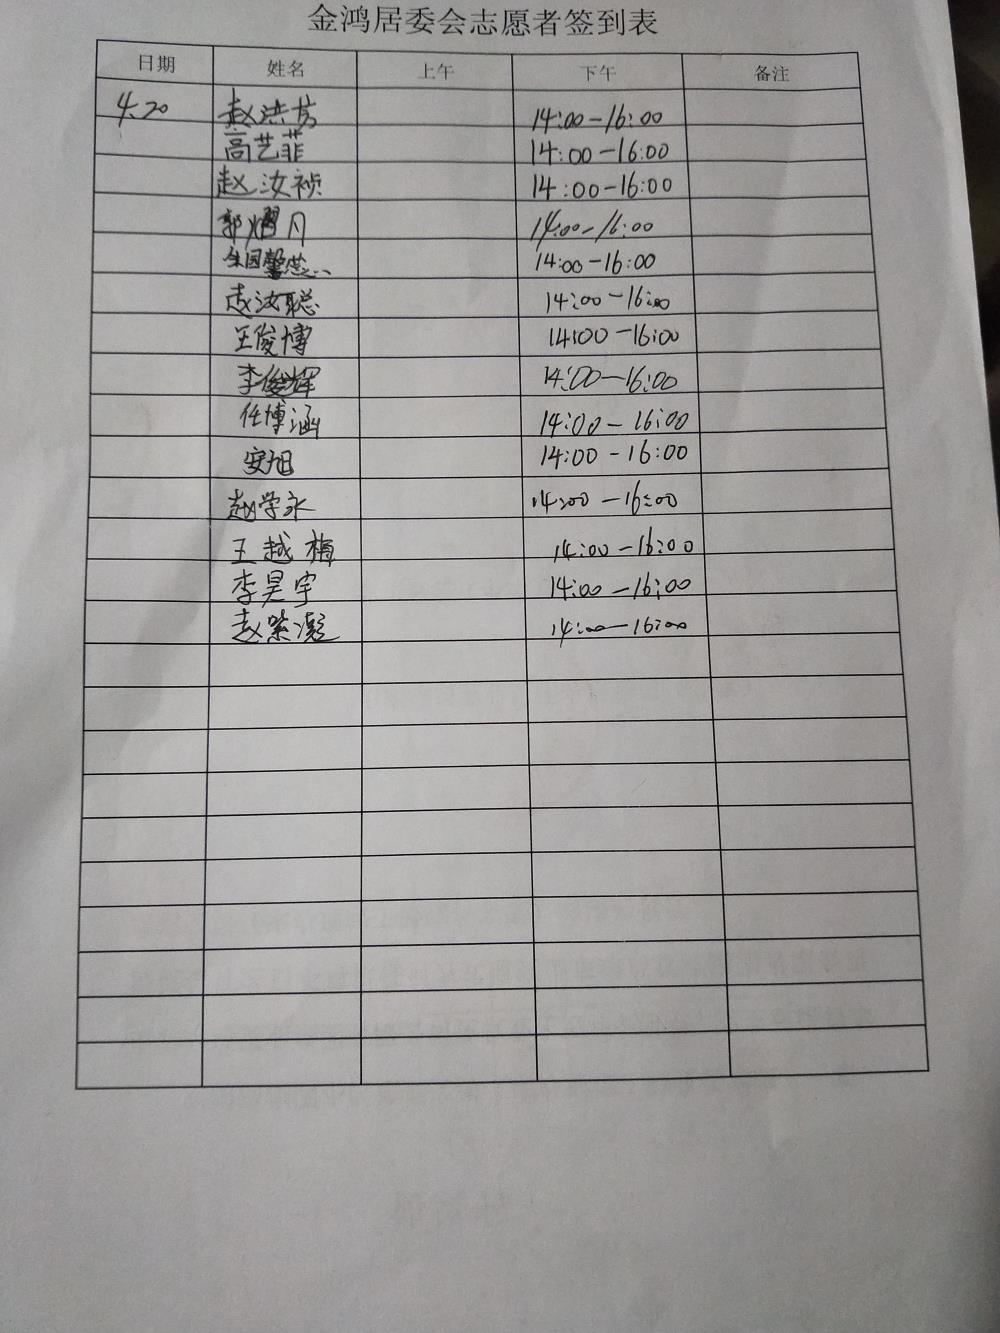 金鸿居委会志愿者签到表
日期 姓名 上午 下午 备注
4.20 赵洪芳 14:00-16:00
高艺菲 14:00-16:00
赵汝祯 14:00-16:00
郭熠月 14:00-16:00
14:00-16:00
赵汝聪 14:00-16:00
王俊博 14:00-16:00
李俊辉 14:00-16:00
任博涵 14:00-16:00
安旭 14:00-16:00
赵学永 14:00-16:00
王越梅 14:00-16:00
李昊宇 14:00-16:00
赵紫凝 14:00-16:00